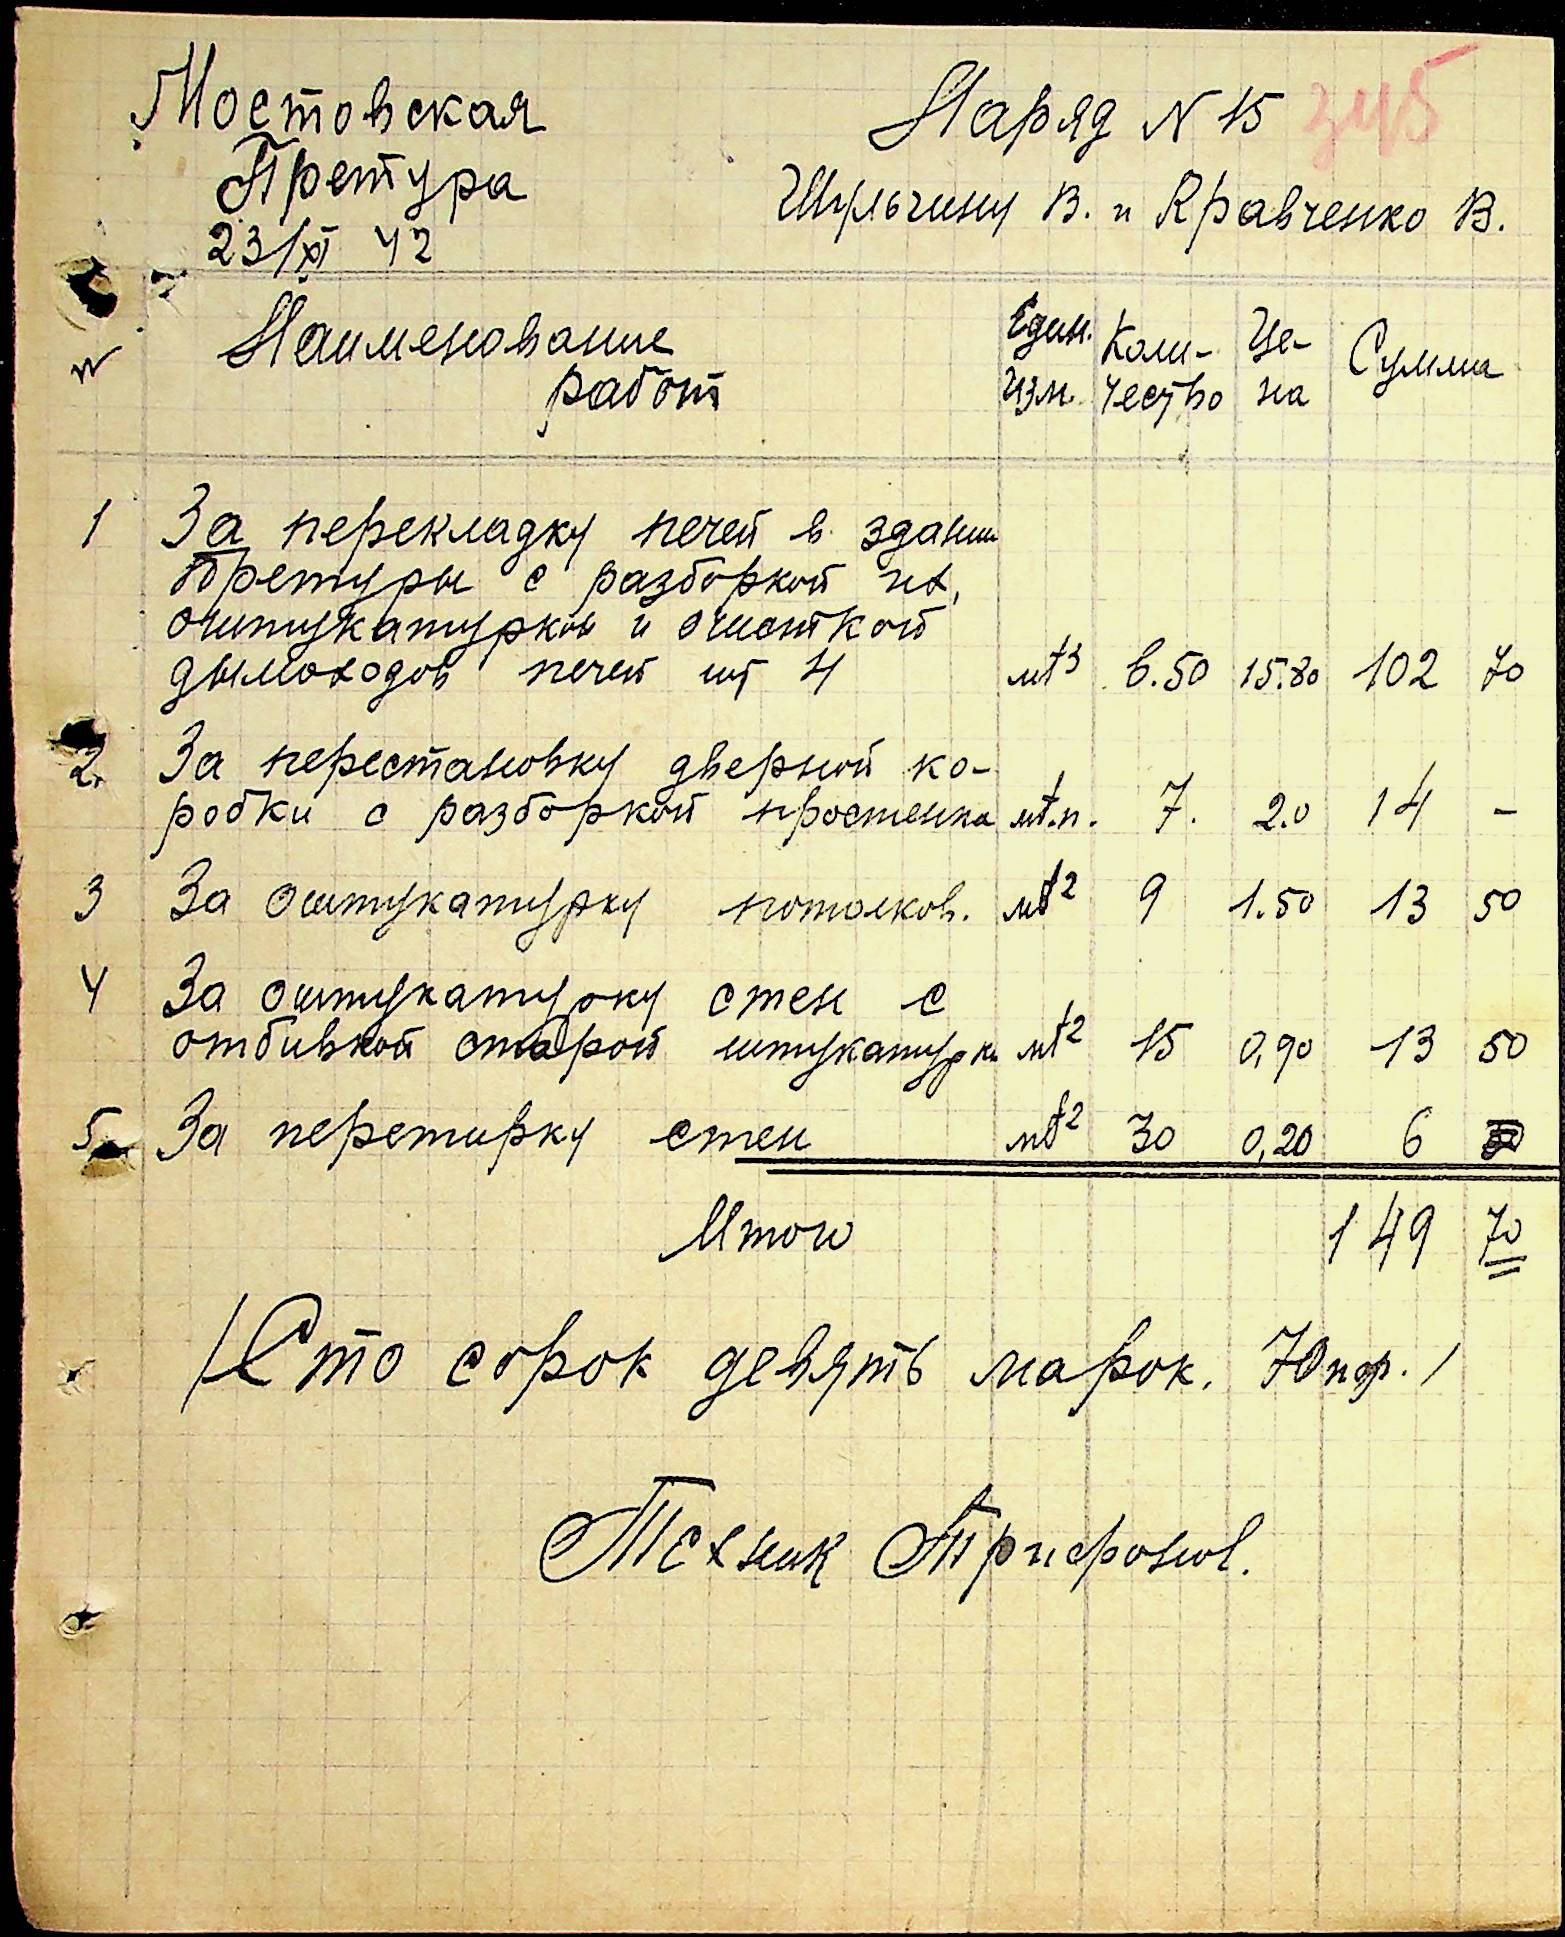 Мостовская
Претура
23/XI 42
Наряд N 15
345
Шульчину В. и Кравченко В.
N
Наименование
работ
Един.
изм.
Коли-
чество
Це-
на
Сумма
1 За перекладку печей в здании
Претуры с разборкой их,
оштукатуркой и очисткой
дымоходов печей шт 4 мт3 6.50 15.80 102 70
2. За перестановку дверной ко-
робки с разборкой простенка мт.п. 7. 2.0 14 –
3 За оштукатурку потолков. мт2 9 1.50 13 50
4 За оштукатурку стен с
отбивкой старой штукатурки мт2 15 0,90 13 50
5. За перетирку стен мт2 30 0,20 6
Итого 149 70
/Сто сорок девять марок. 70 пф./
Техник Трифонов.